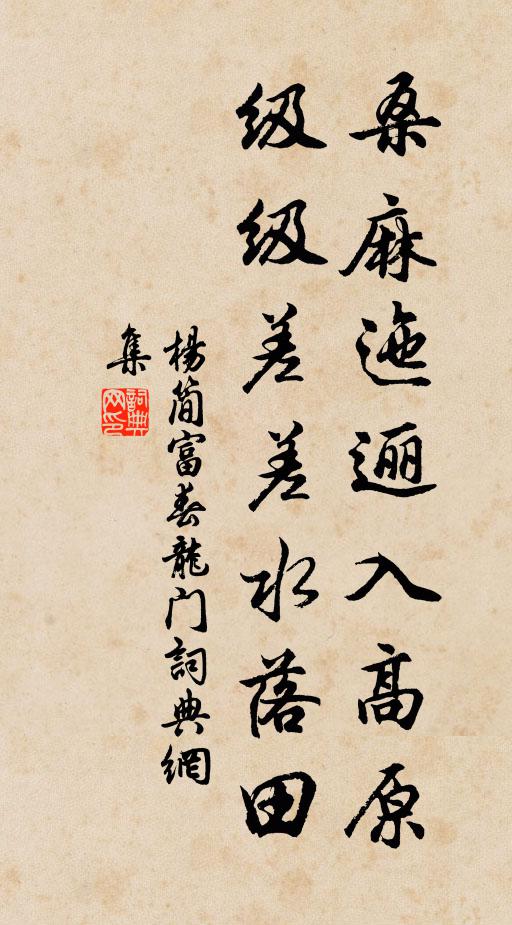 桑麻迤逦入高原
级级差差水落田
楊简富春龍门詞典網
集
詞典
网印